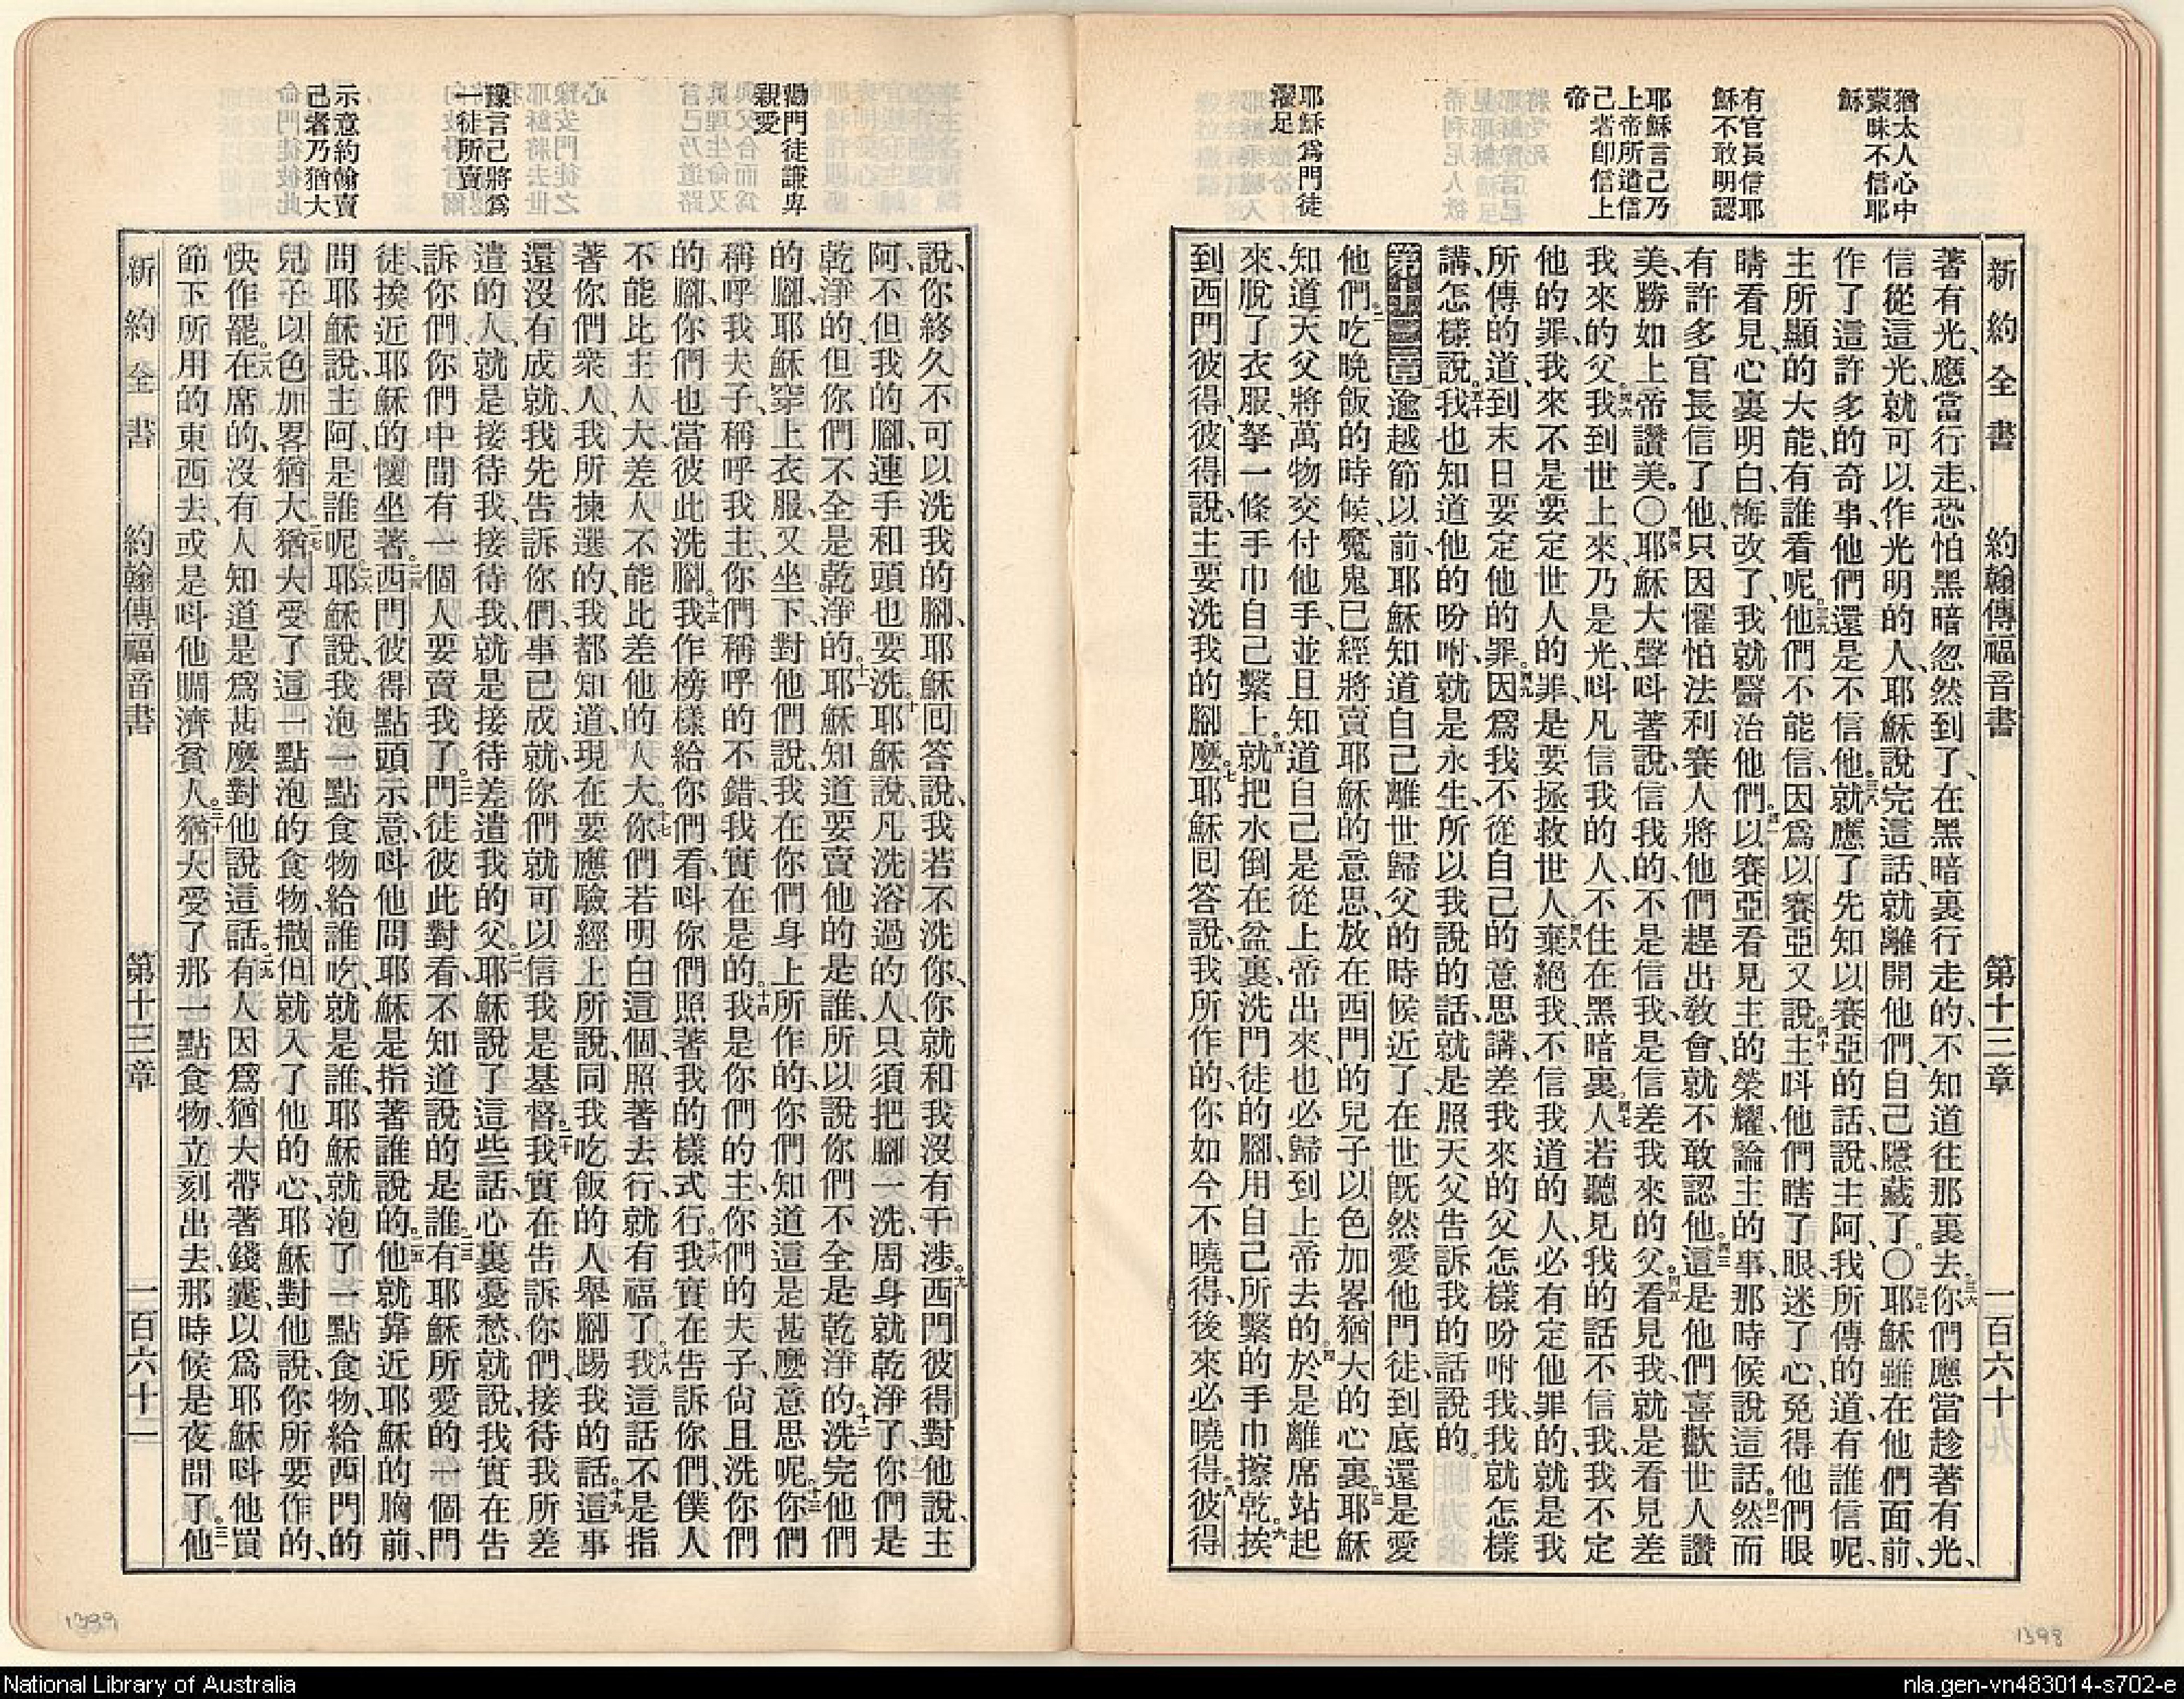 猶太人心中
蒙昧不信耶
穌
有官長信耶
穌不敢明認
耶穌言己乃
上帝所遣信
己者卽信上
帝
耶穌爲門徒
濯足
新約全書 約翰傳福音書 第十三章 一百六十
著有光、應當行走、恐怕黑暗忽然到了、在黑暗裏行走的、不知道往那裏去、三六你們應當趁著有光、
信從這光、就可以作光明的人、耶穌說完這話、就離開他們、自己隱藏了。〇三七耶穌雖在他們面前、
作了這許多的奇事、他們還是不信他、三八就應了先知以賽亞的話、說、主阿、我所傳的道、有誰信呢、
主所顯的大能、有誰看呢、三九他們不能信、因爲以賽亞又說、四十主呌他們瞎了眼、迷了心、免得他們眼
睛看見、心裏明白、悔改了、我就醫治他們。四一以賽亞看見主的榮耀、論主的事、那時候說這話。四二然而
有許多官長信了他、只因懼怕法利賽人將他們趕出敎會、就不敢認他。四三這是他們喜歡世人讚
美、勝如上帝讚美。〇四四耶穌大聲呌著說、信我的、不是信我、是信差我來的父。四五看見我、就是看見差
我來的父。四六我到世上來、乃是光、呌凡信我的人、不住在黑暗裏。四七人若聽見我的話不信我、我不定
他的罪、我來不是要定世人的罪、是要拯救世人。四八棄絕我、不信我道的人、必有定他罪的、就是我
所傳的道、到末日要定他的罪。四九因爲我不從自己的意思講、差我來的父怎樣吩咐我、我就怎樣
講、怎樣說。五十我也知道他的吩咐、就是永生、所以我說的話、就是照天父告訴我的話說的。
第十三章 逾越節以前、耶穌知道自己離世歸父的時候近了、在世旣然愛他門徒、到底還是愛
他們。二吃晚飯的時候、魔鬼已經將賣耶穌的意思、放在西門的兒子以色加畧猶大的心裏、三耶穌
知道天父將萬物交付他手、並且知道自己是從上帝出來、也必歸到上帝去的、四於是離席站起
來、脫了衣服、拏一條手巾自己繫上。五就把水倒在盆裏、洗門徒的腳、用自己所繫的手巾擦乾。六挨
到西門彼得、彼得說、主要洗我的腳麼。七耶穌回答說、我所作的、你如今不曉得、後來必曉得。八彼得
勸門徒謙卑
親愛
豫言己將爲
一徒所賣
示意約翰賣
己者乃猶大
說、你終久不可以洗我的腳、耶穌回答說、我若不洗你、你就和我沒有干涉。九西門彼得對他說、主
阿、不但我的腳、連手和頭也要洗。十耶穌說、凡洗浴過的人、只須把腳一洗、周身就乾淨了、你們是
乾淨的、但你們不全是乾淨的。十一耶穌知道要賣他的是誰、所以說你們不全是乾淨的。十二洗完他們
的腳、耶穌穿上衣服、又坐下、對他們說、我在你們身上所作的、你們知道這是甚麼意思呢。十三你們
稱呼我夫子、稱呼我主、你們稱呼的不錯、我實在是的。十四我是你們的主、你們的夫子、尙且洗你們
的腳、你們也當彼此洗腳。十五我作榜樣給你們看、呌你們照著我的樣式行。十六我實在告訴你們、僕人
不能比主人大、差人不能比差他的人大。十七你們若明白這個、照著去行、就有福了。十八我這話不是指
著你們衆人、我所揀選的、我都知道、現在要應驗經上所說、同我吃飯的人、舉腳踢我的話。十九這事
還沒有成就、我先告訴你們、事已成就、你們就可以信我是基督。二十我實在告訴你們、接待我所差
遣的人、就是接待我、接待我、就是接待差遣我的父。二一耶穌說了這些話、心裏憂愁、就說、我實在告
訴你們、你們中間有一個人要賣我了。二二門徒彼此對看、不知道說的是誰。二三有耶穌所愛的一個門
徒、挨近耶穌的懷坐著。二四西門彼得點頭示意、呌他問耶穌是指著誰說的。二五他就靠近耶穌的胸前、
問耶穌說、主阿、是誰呢。二六耶穌說、我泡一點食物給誰吃、就是誰、耶穌就泡了一點食物、給西門的
兒子以色加畧猶大。二七猶大受了這一點泡的食物、撒但就入了他的心、耶穌對他說、你所要作的、
快作罷。二八在席的、沒有人知道是爲甚麼對他說這話。二九有人因爲猶大帶著錢囊、以爲耶穌呌他買
節下所用的東西去、或是呌他賙濟貧人。三十猶大受了那一點食物、立刻出去、那時候是夜間了。三一他
新約全書 約翰傳福音書 第十三章 一百六十一
1399
1398
National Library of Australia
nla.gen-vn483014-s702-e